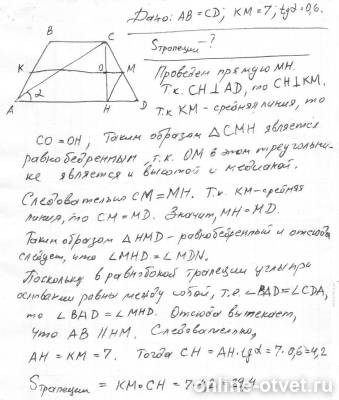 Дано: AB = CD; KM = 7; tgα = 0,6.
B
C
Sтрапеции - ?
K
O
M
Проведём прямую MH.
Т.к. CH⊥AD, то CH⊥KM.
A
α
H
D
Т.к. KM - средняя линия, то
CO = OH; Таким образом △CMH является
равнобедренным, т.к. OM в этом треугольни-
ке является и высотой и медианой.
Следовательно CM = MH. Т.к. KM - средняя
линия, то CM = MD. Значит, MH = MD.
Таким образом △HMD - равнобедренный и отсюда
следует, что ∠MHD = ∠MDH.
Поскольку в равнобокой трапеции углы при
основании равны между собой, т.е. ∠BAD = ∠CDA,
то ∠BAD = ∠MHD. Отсюда вытекает,
что AB || HM. Следовательно,
AH = KM = 7. Тогда CH = AH·tgα = 7·0,6 = 4,2
Sтрапеции = KM·CH = 7·4,2 = 29,4
online-otvet.ru